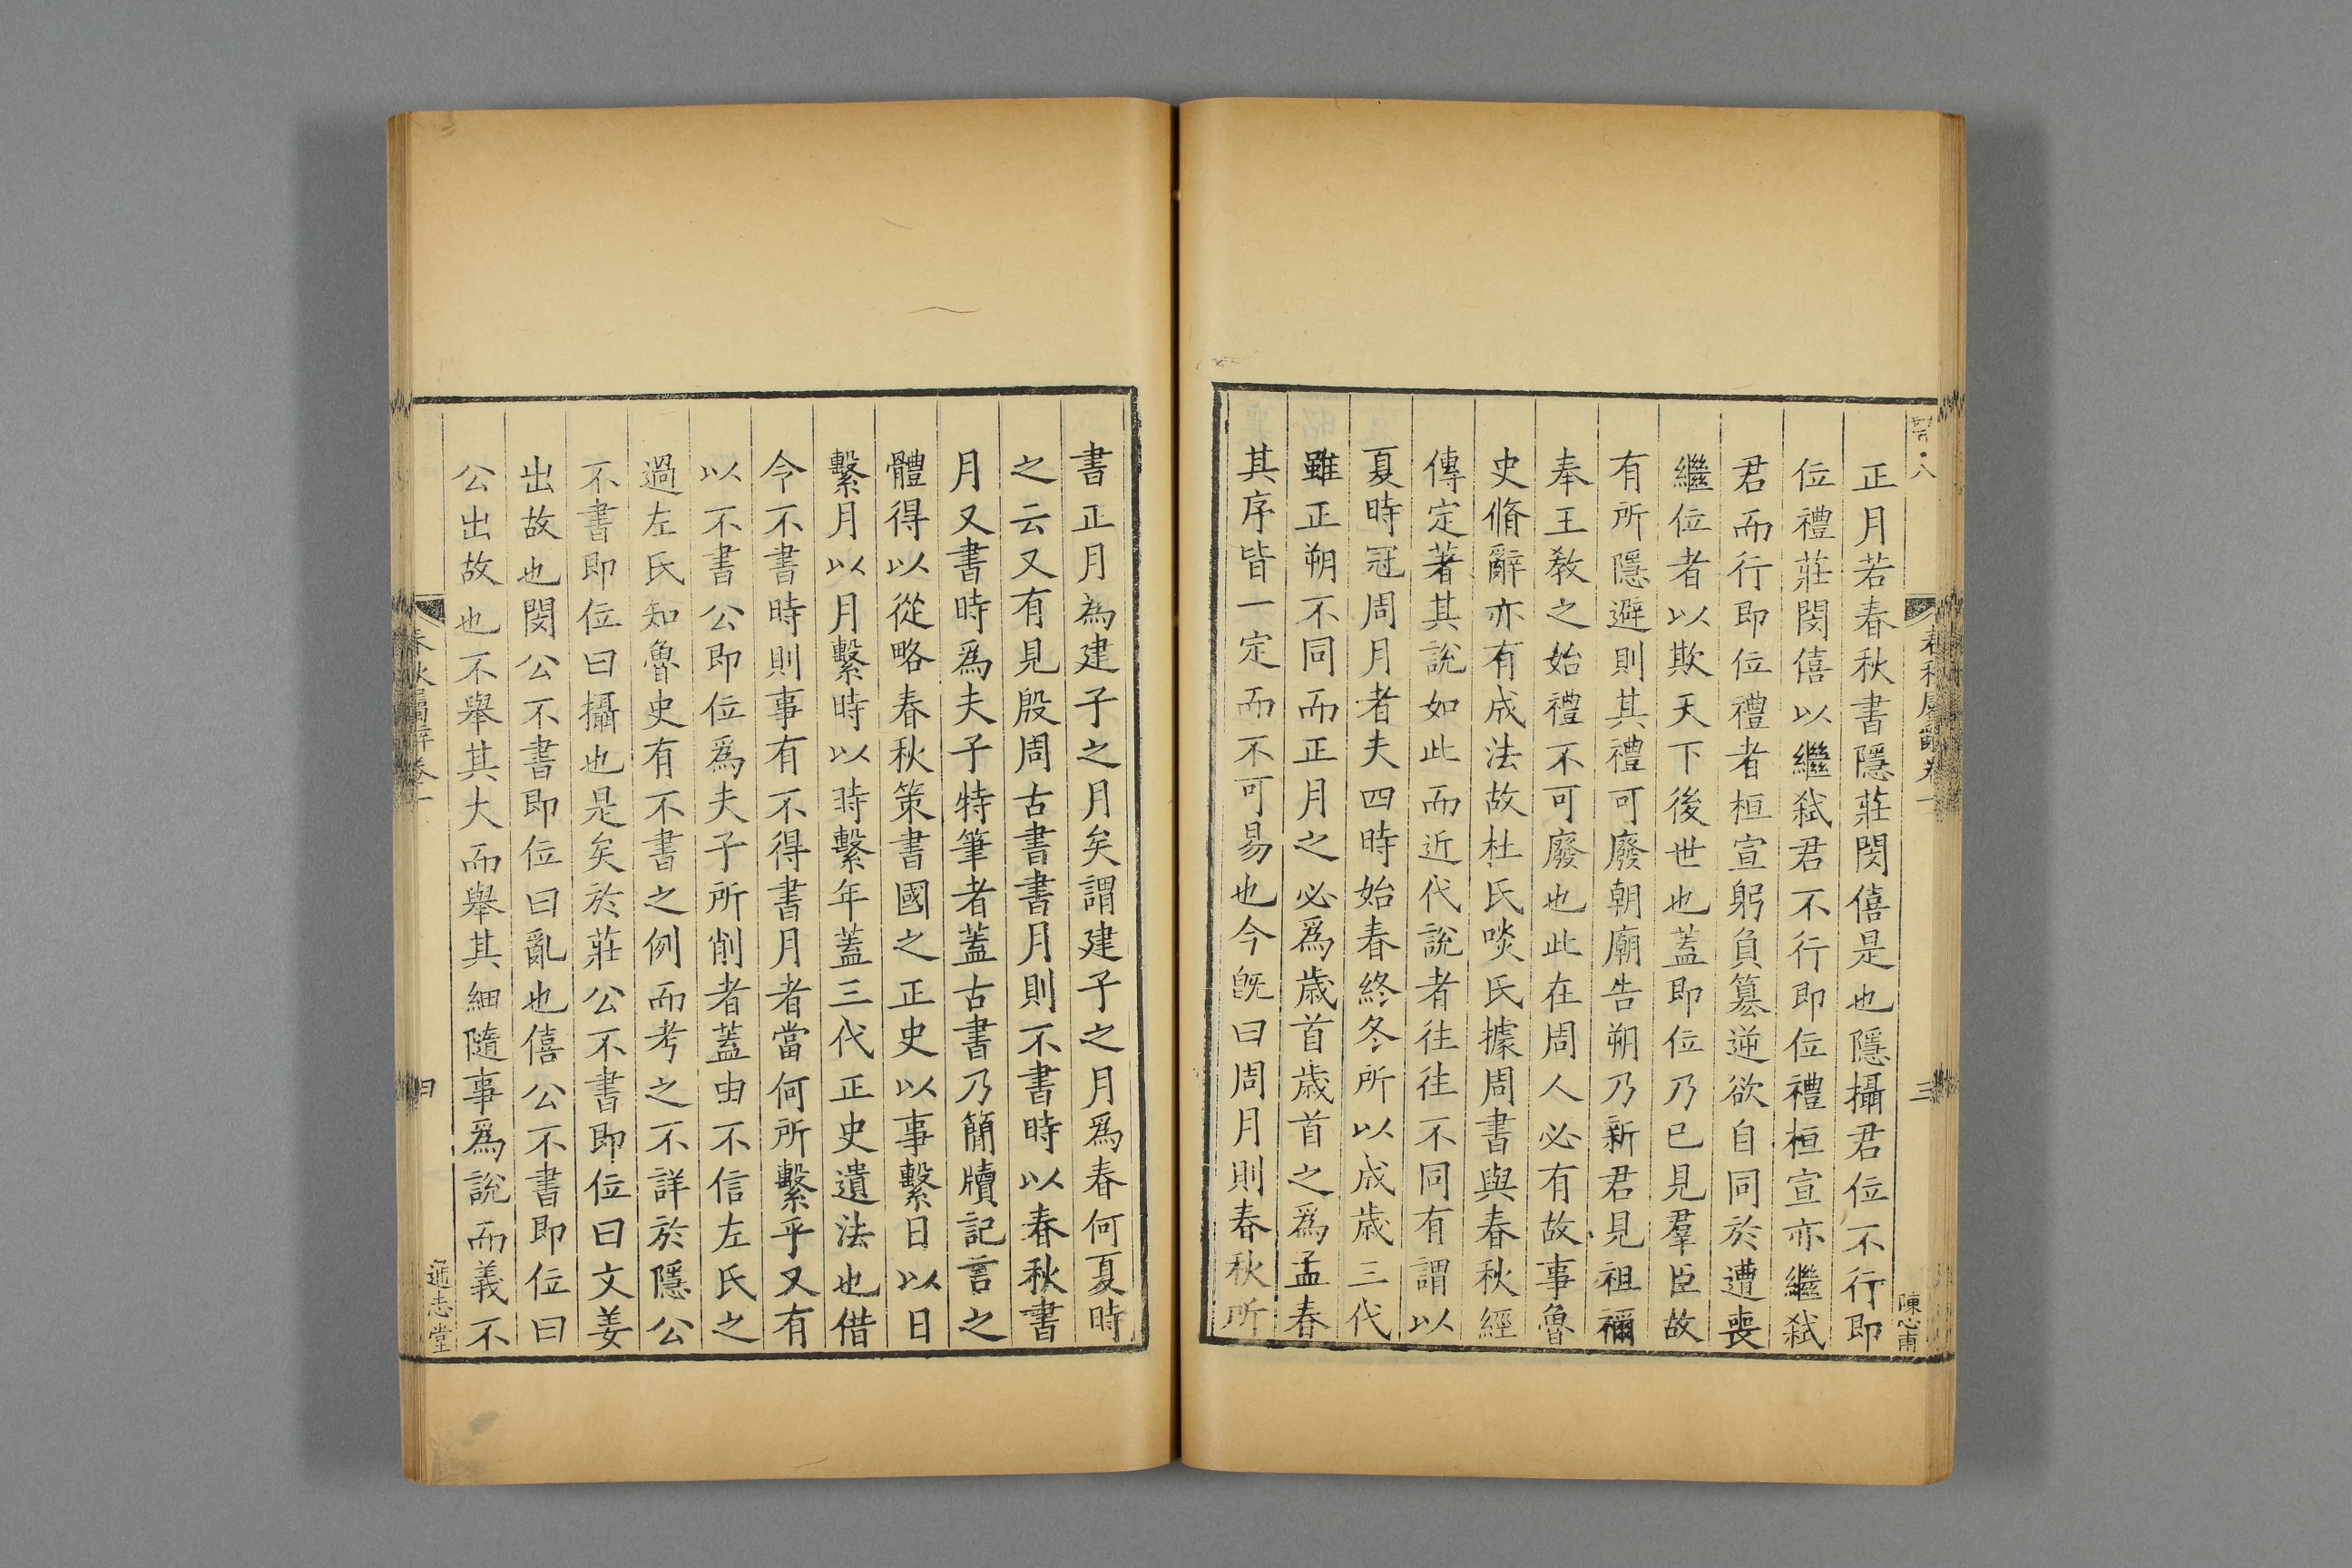 正月若春秋書隱莊閔僖是也隱攝君位不行即
位禮莊閔僖以繼弑君不行即位禮桓宣亦繼弑
君而行即位禮者桓宣躬負簒逆欲自同於遭喪
繼位者以欺天下後世也蓋即位乃已見羣臣故
有所隱避則其禮可廢朝廟告朔乃新君見祖禰
奉王教之始禮不可廢也此在周人必有故事魯
史脩辭亦有成法故杜氏啖氏據周書與春秋經
傳定著其說如此而近代說者往往不同有謂以
夏時冠周月者夫四時始春終冬所以成歲三代
雖正朔不同而正月之必爲歲首歲首之爲孟春
其序皆一定而不可易也今旣曰周月則春秋所
春秋屬辭卷一
三
陳心甫
書正月為建子之月矣謂建子之月爲春何夏時
之云又有見殷周古書書月則不書時以春秋書
月又書時爲夫子特筆者蓋古書乃簡牘記言之
體得以從略春秋策書國之正史以事繫日以日
繫月以月繫時以時繫年蓋三代正史遺法也借
令不書時則事有不得書月者當何所繫乎又有
以不書公即位爲夫子所削者蓋由不信左氏之
過左氏知魯史有不書之例而考之不詳於隱公
不書即位曰攝也是矣於莊公不書即位曰文姜
出故也閔公不書即位曰亂也僖公不書即位曰
公出故也不舉其大而舉其細隨事爲說而義不
春秋屬辭卷一
通志堂